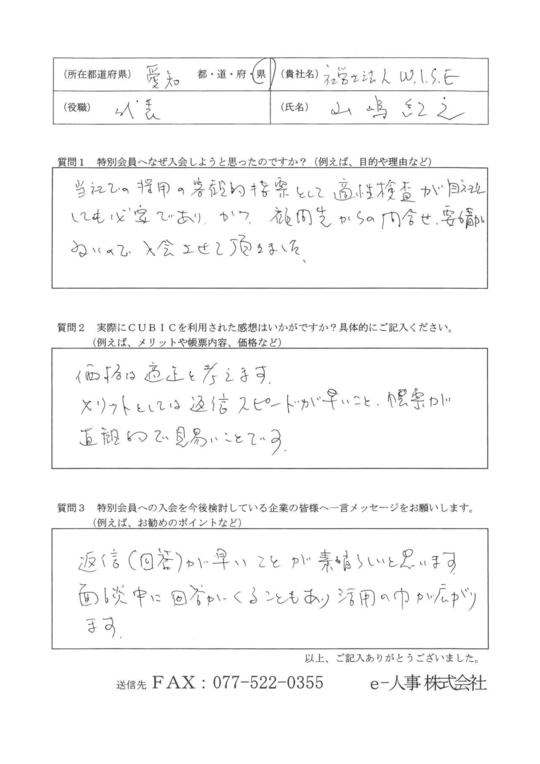 （所在都道府県） 愛知 都・道・府・県 （貴社名） 社労士法人 W.I.S.E
（役職） 代表 （氏名） 山嶋 紀之
質問１ 特別会員へなぜ入会しようと思ったのですか？（例えば、目的や理由など）
当社での採用の客観的指標として適性検査が自社と
しても必要であり、かつ、顧問先からの問合せ、要望が
多いので入会させて頂きました。
質問２ 実際にＣＵＢＩＣを利用された感想はいかがですか？具体的にご記入ください。
（例えば、メリットや帳票内容、価格など）
価格は適正と考えます。
メリットとしては返信スピードが早いこと、帳票が
直観的で見易いことです。
質問３ 特別会員への入会を今後検討している企業の皆様へ一言メッセージをお願いします。
（例えば、お勧めのポイントなど）
返信（回答）が早いことが素晴らしいと思います。
面談中に回答がくることもあり活用の巾が広がり
ます。
以上、ご記入ありがとうございました。
送信先 ＦＡＸ：077-522-0355 e-人事 株式会社